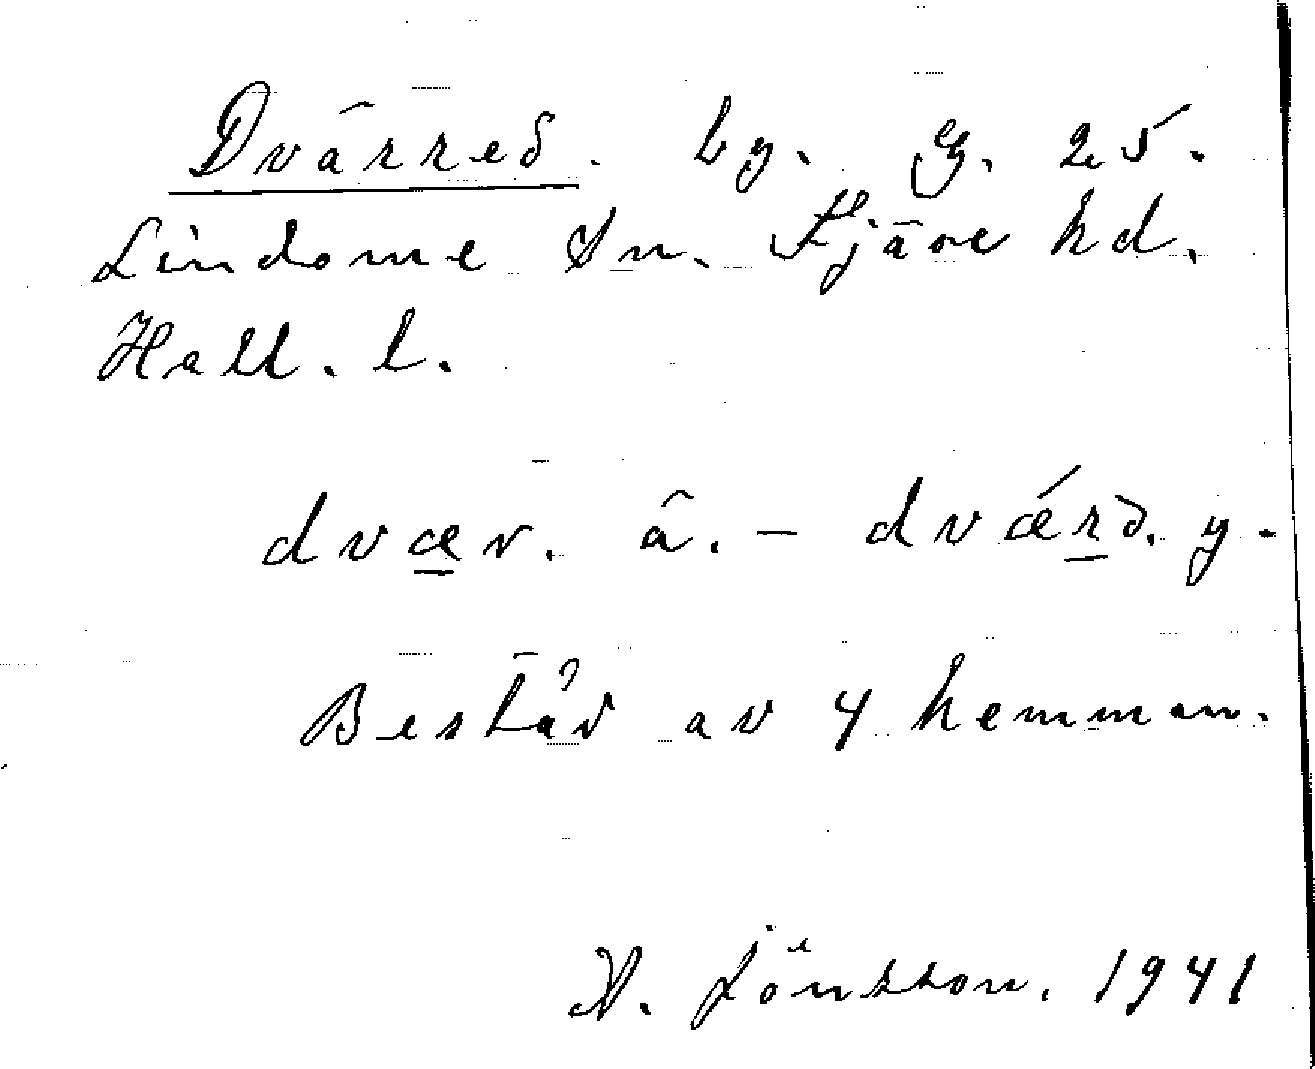 Dvärred. by. G. 25.
Lindome sn. Fjäre hd.
Hall. l.
dvær. ä. – dværd. y.
Består av 4 hemman.
A. Jönsson. 1941